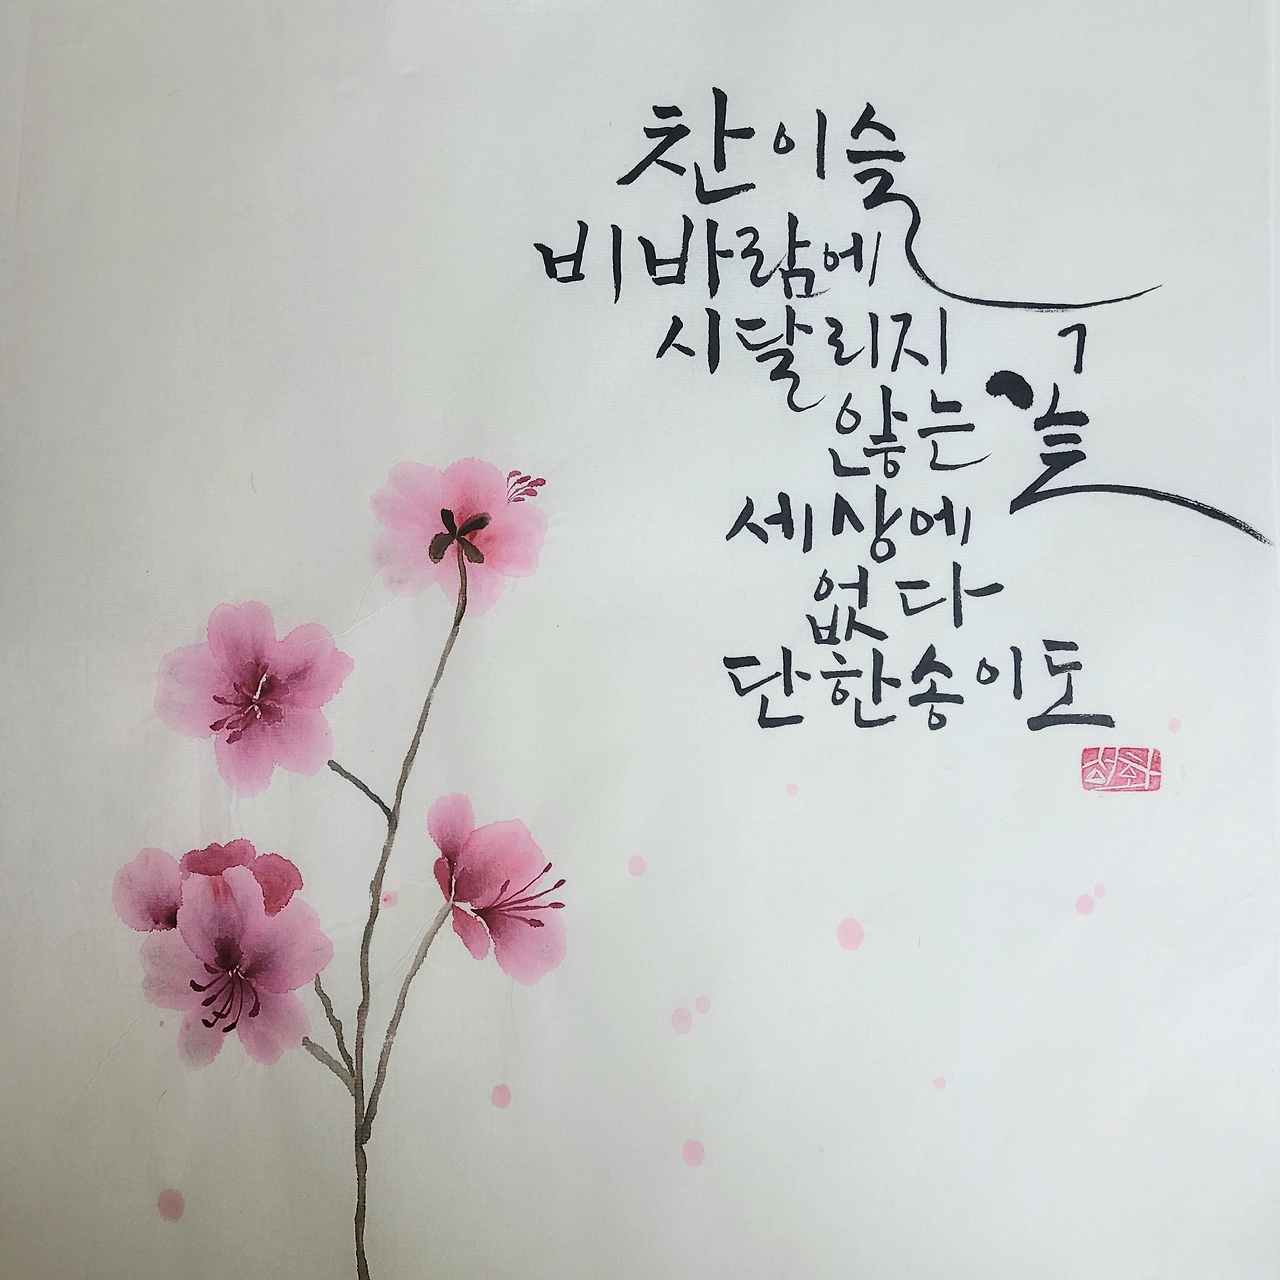 찬이슬
비바람에
시달리지
않는 꽃
세상에
없다
단한송이도